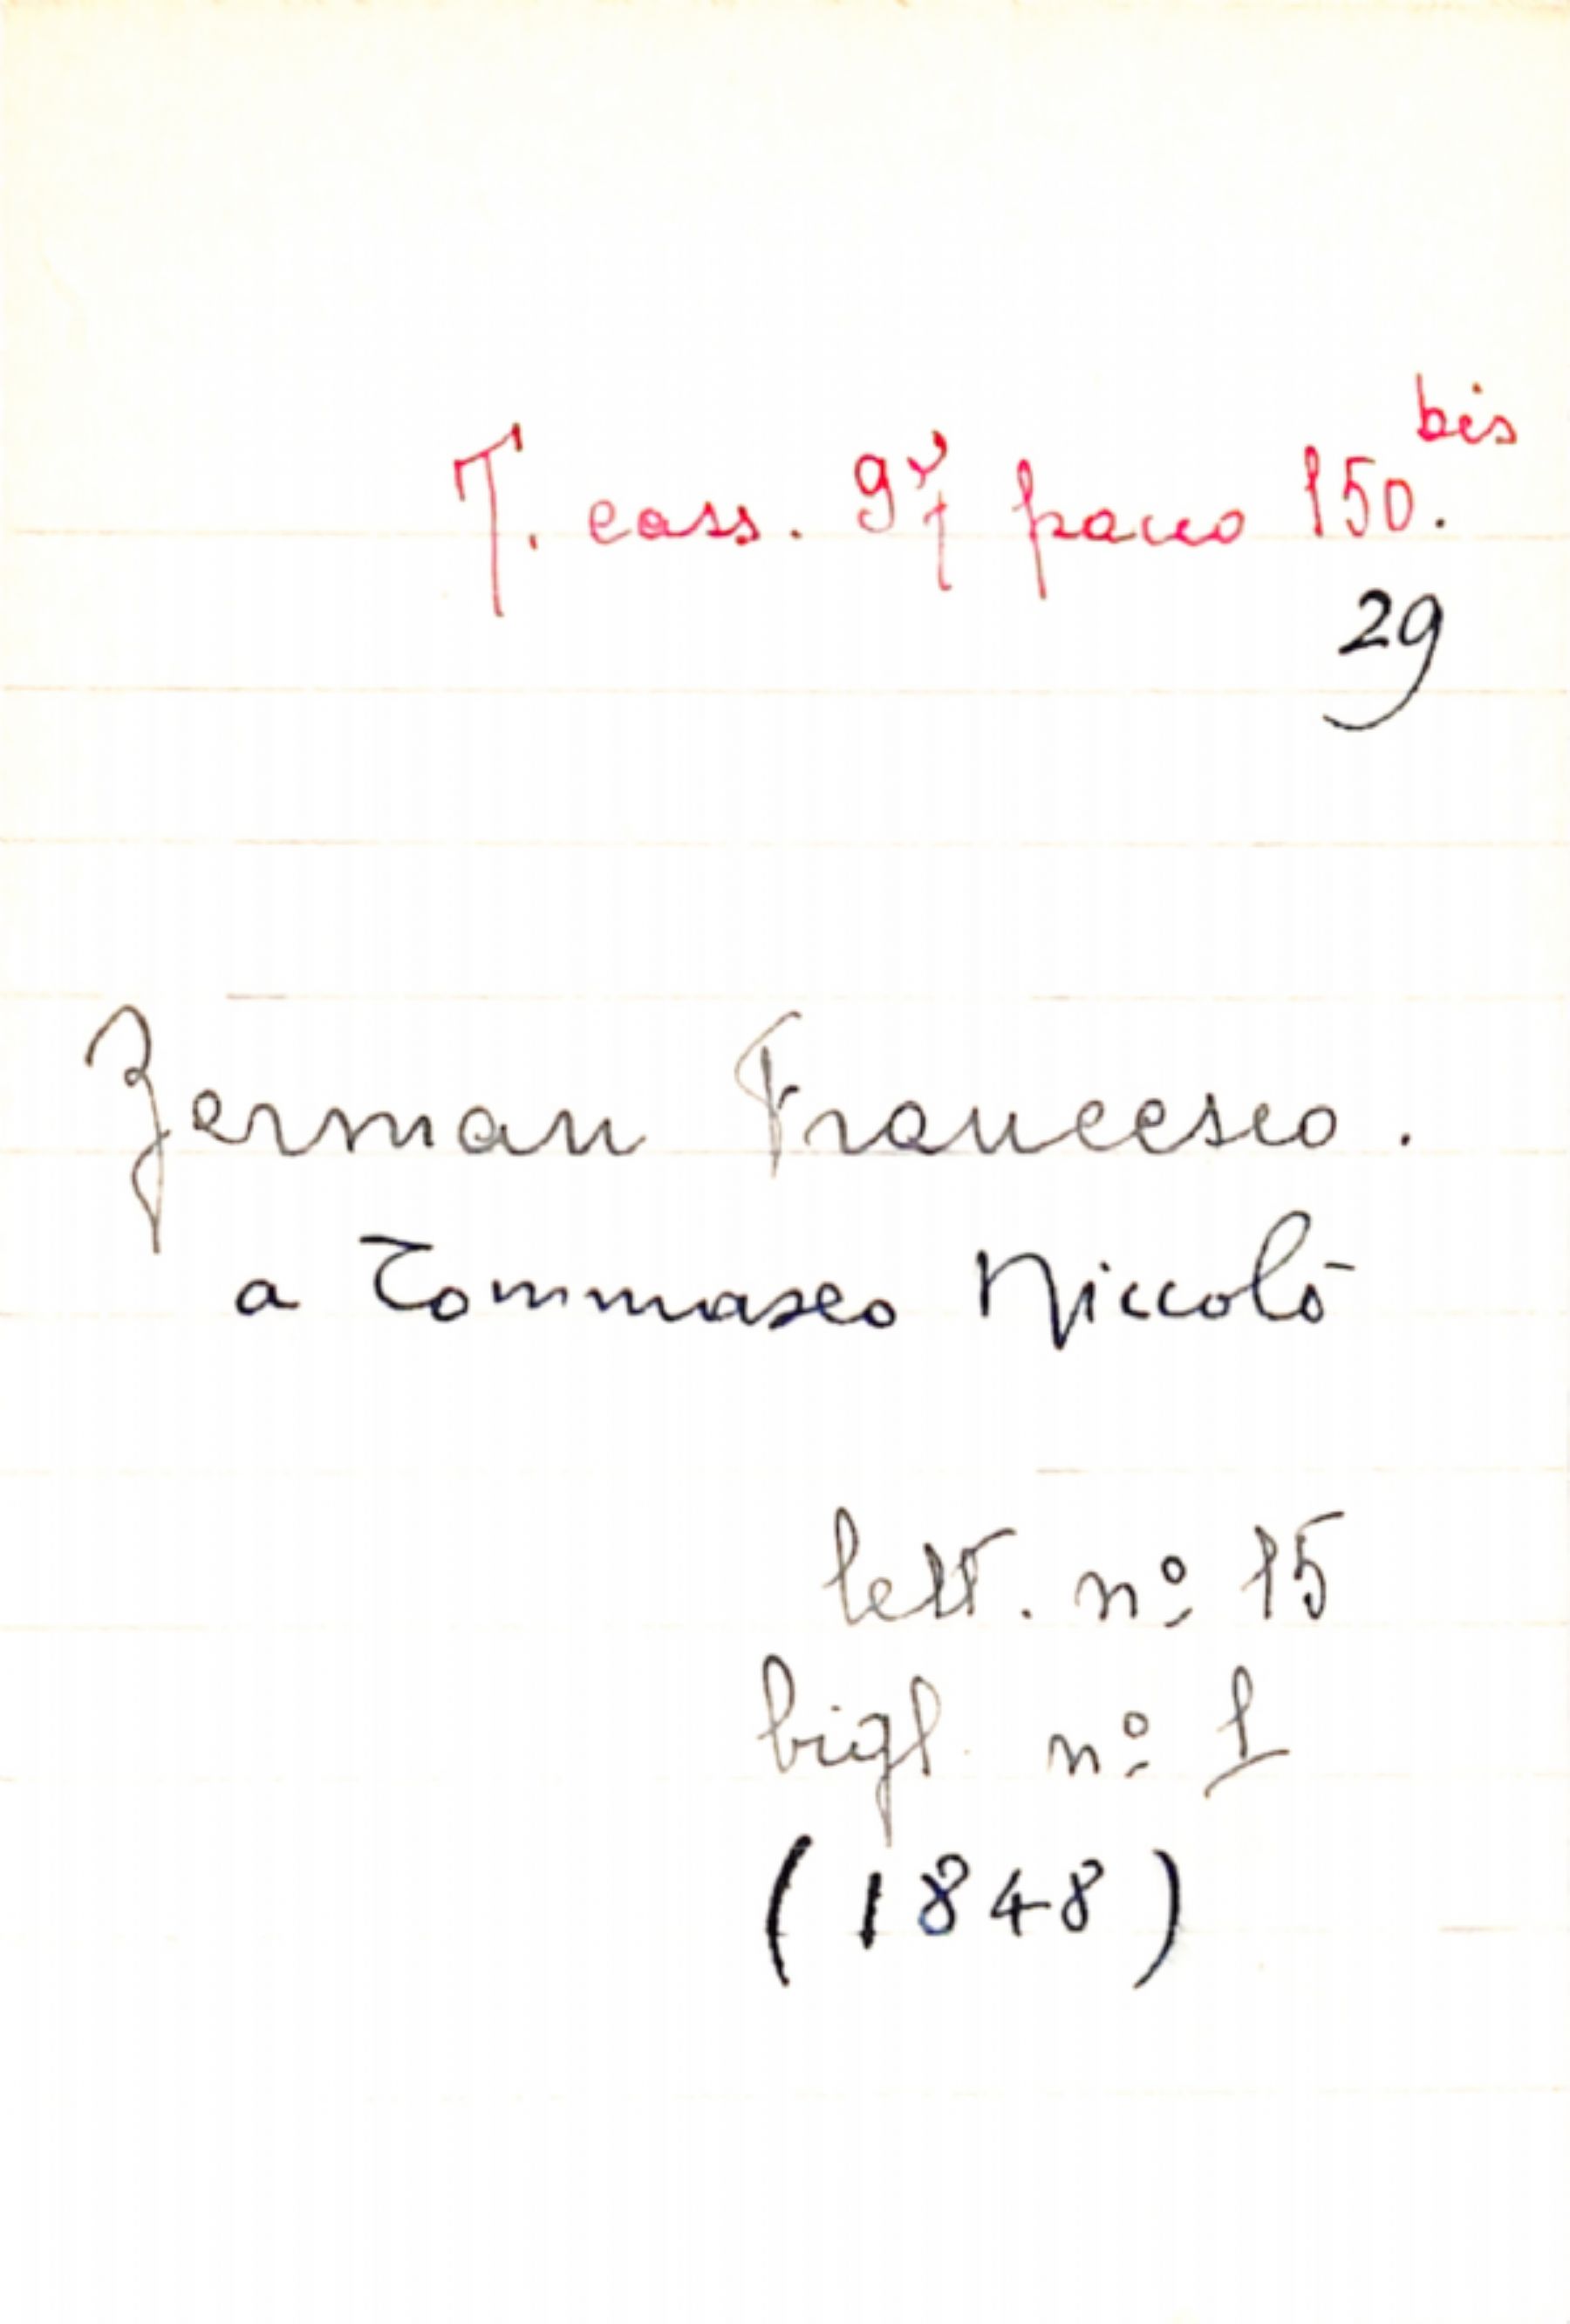 T. cass. 97 pacco 150. bis
29
Zerman Francesco.
a Tommaseo Niccolò
lett. nº 15
bigl. nº 1
(1848)